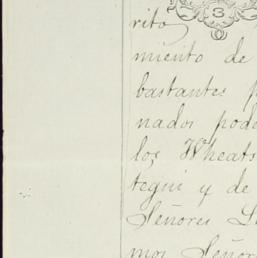 3
rito
miento de
bastantes p
nados pode
los Wheats
tegui y de
Señores L
mos Señor